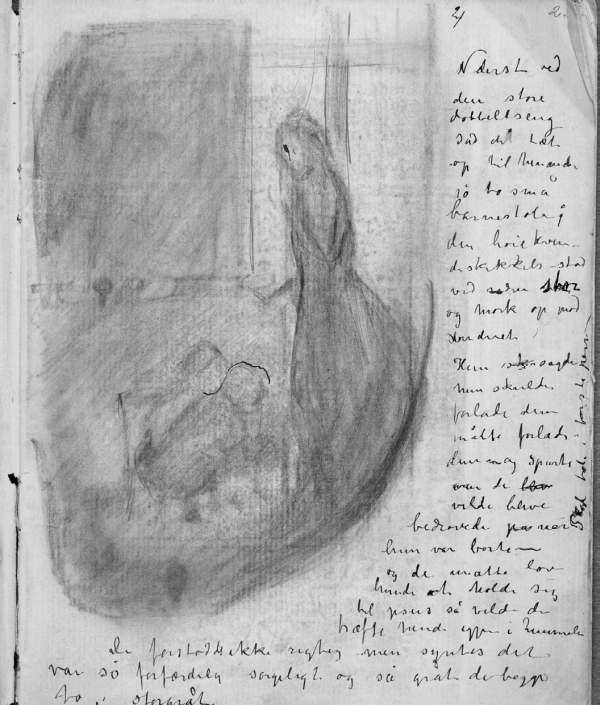 2
Nederst ved
den store
dobbeltseng
sad de tæt
op til hinanden
på to små
barnestole;
den høie kvin-
deskikkelse stod
ved stor
og mørk op mod
vinduet
Hun sagde
hun skulde
forlade dem
måtte forlade
dem og spurte
om de
vilde
bedrøvede når
hun var borte –
og de måtte love
hende at holde sig
til jesus så vilde de
træffe hende igjen i himmelen
De forstod ikke rigtig men syntes det
var så forfærdelig sørgeligt og så gråt de begge
to i storgråt.
i første person